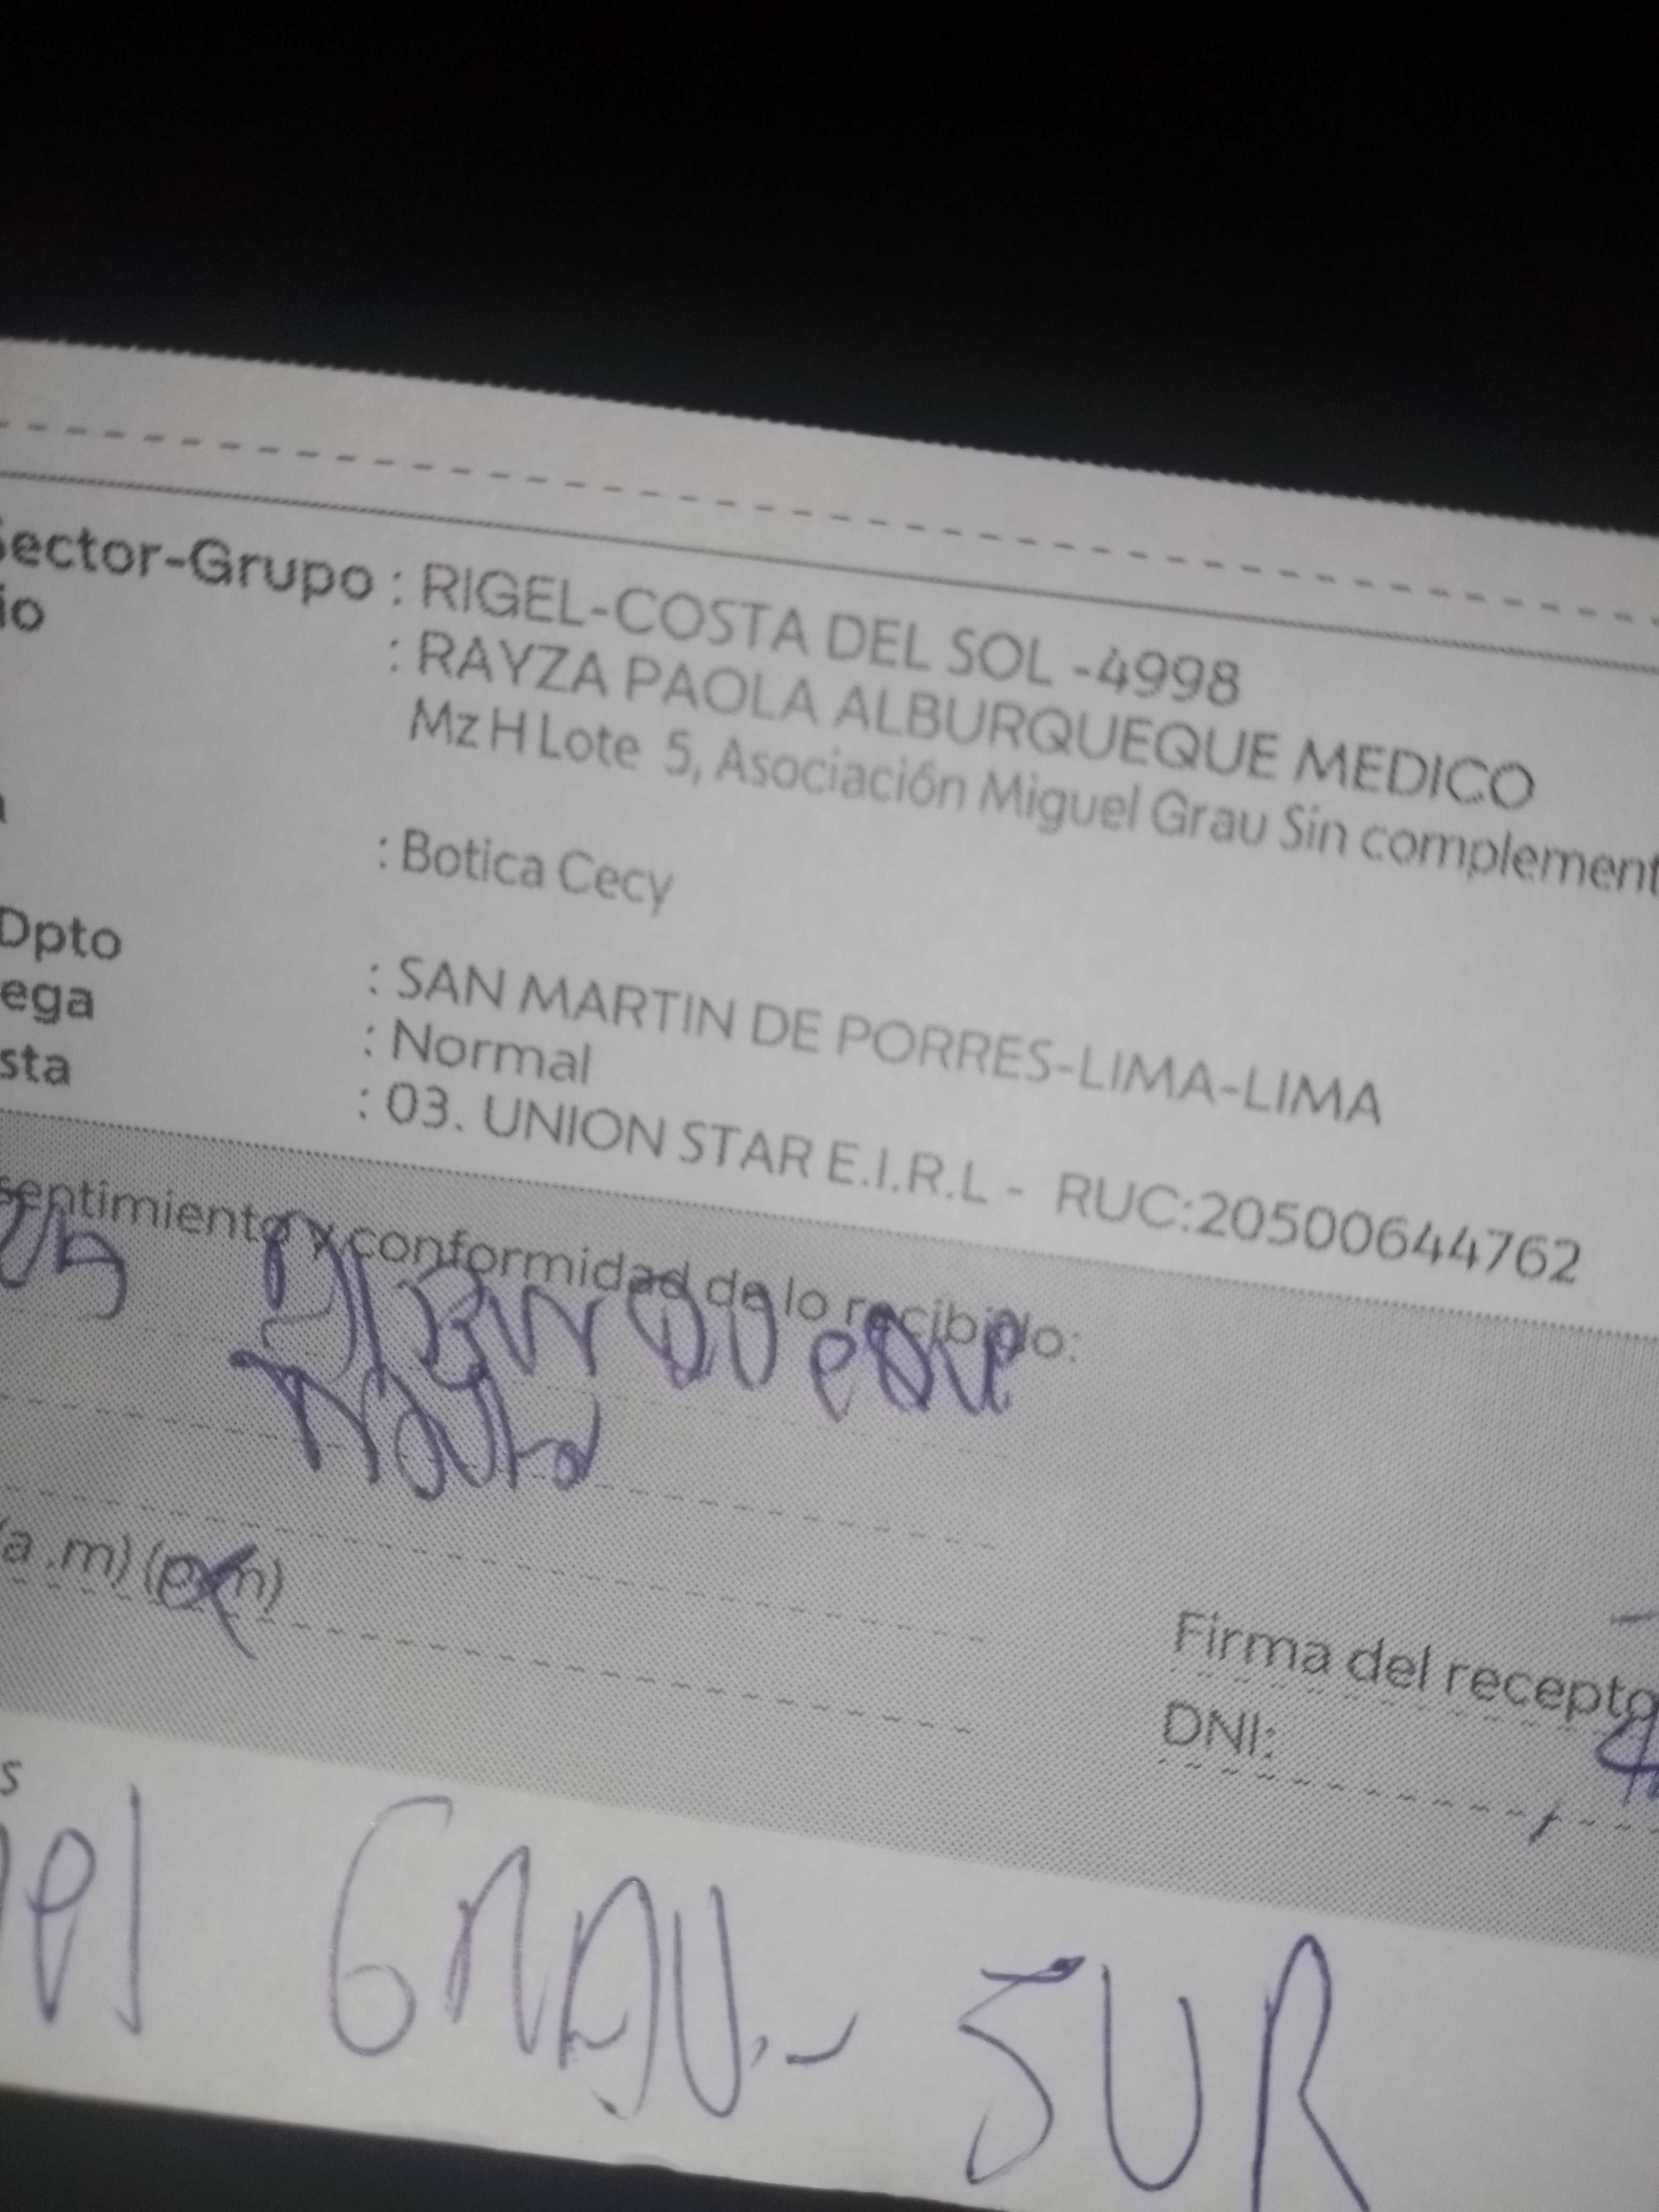 Sector-Grupo : RIGEL-COSTA DEL SOL -4998
io : RAYZA PAOLA ALBURQUEQUE MEDICO
Mz H Lote 5, Asociación Miguel Grau Sin complement
: Botica Cecy
Dpto : SAN MARTIN DE PORRES-LIMA-LIMA
ega : Normal
sta : 03. UNION STAR E.I.R.L - RUC:20500644762
sentimiento y conformidad de lo recibido:
(a .m) (p.m)
Firma del recepto
DNI:
s
uel GRAU.- SUR